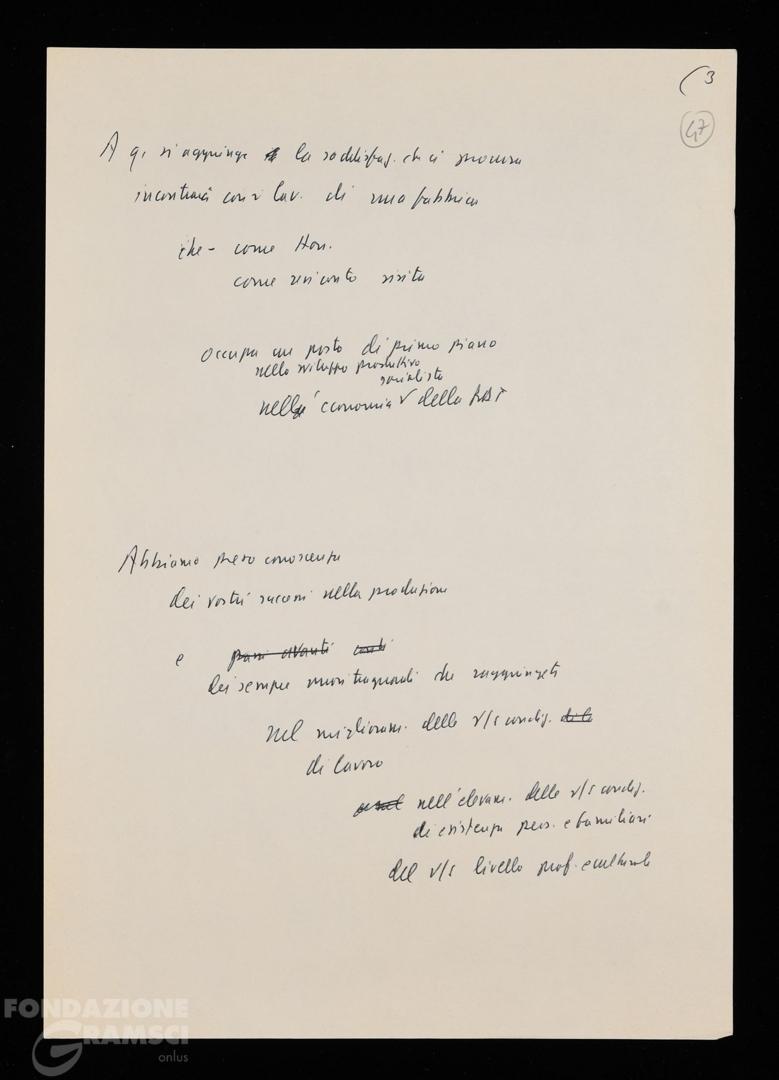 (3
47
A q. si aggiunge la soddisfaz. che ci procura
incontrarci con i lav. di una fabbrica
che - come
come visita
occupa un posto di primo piano
nello sviluppo produttivo
socialista
nell' economia della RDT
Abbiamo preso conoscenza
dei vostri successi nella produzione
e passi avanti
dei sempre nuovi traguardi che raggiungete
nel miglioram. delle v/s condiz.
di lavoro
nell'elevam. delle v/s condiz.
di esistenza pers. e familiari
del v/s livello prof. e culturale
FONDAZIONE
GRAMSCI
onlus